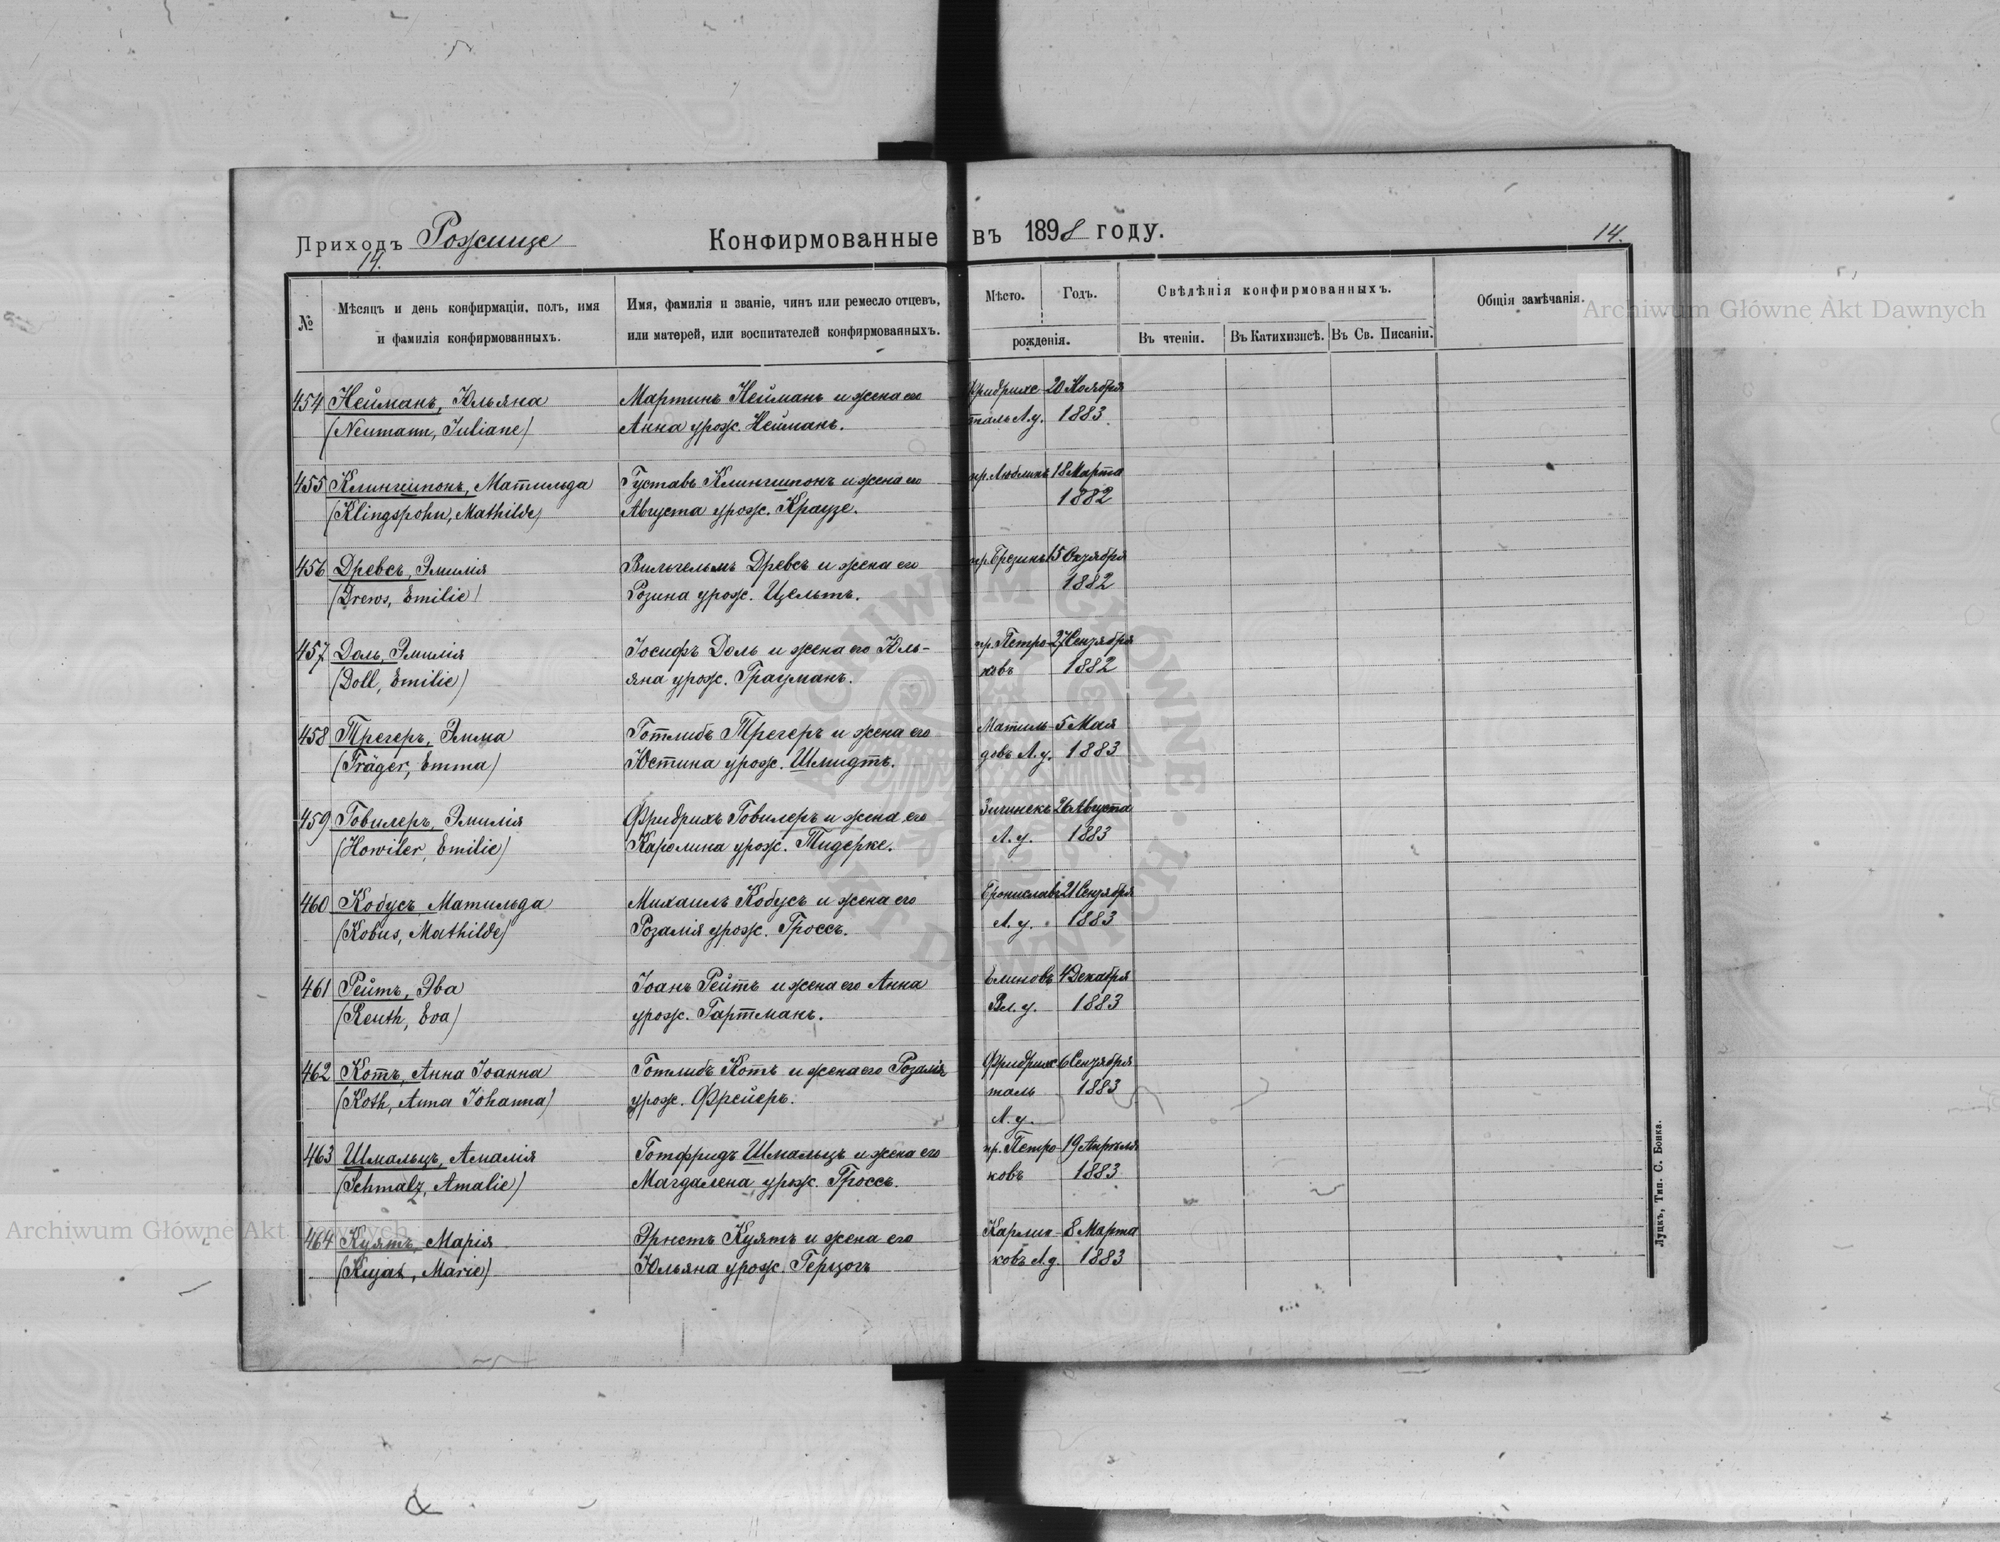 Приходъ Рожище
14.
Конфирмованные въ 1898 году.
14.
№
Мѣсяцъ и день конфирмаціи, полъ, имя
и фамилія конфирмованныхъ.
Имя, фамилія и званіе, чинъ или ремесло отцевъ,
или матерей, или воспитателей конфирмованныхъ.
Мѣсто.
Годъ.
рожденія.
Свѣдѣнія конфирмованныхъ.
Въ чтеніи.
Въ Катихизисѣ.
Въ Св. Писаніи.
Общія замѣчанія.
454 Нейманъ, Юльяна Мартинъ Нейманъ и жена его Фридрихс- 20 Ноября
(Neumann, Juliane) Анна урож. Нейманъ. таль Л.у. 1883.
455 Клингшпонъ, Матильда Густавъ Клингшпонъ и жена его пр. Люблинъ 18 Марта
(Klingspohn, Mathilde) Августа урож. Краузе. 1882
456 Древсъ, Эмилія Вильгельмъ Древсъ и жена его пр. Брезины 15 Октября
(Drews, Emilie) Розина урож. Цельтъ. 1882
457 Доль, Эмилія Іосифъ Доль и жена его Юль-
яна урож. Грауманъ. пр. Петро- 27 Сентября
(Doll, Emilie) ковъ 1882
458 Трегеръ, Эмма Готлибъ Трегеръ и жена его Матиль- 5 Мая
(Träger, Emma) Юстина урож. Шмидтъ. довъ Л.у. 1883
459 Говилеръ, Эмилія Фридрихъ Говилеръ и жена его 26 Августа
(Howiler, Emilie) Каролина урож. Тидерке. Л.у. 1883
460 Кобусъ Матильда Михаилъ Кобусъ и жена его Брониславъ 21 Сентября
(Kobus, Mathilde) Розалія урож. Гроссъ. Л.у. 1883
461 Рейтъ, Эва Іоанъ Рейтъ и жена его Анна 4 Декабря
(Reuth, Eva) урож. Гартманъ. Вл.у. 1883
462 Котъ, Анна Іоанна Готлибъ Котъ и жена его Розалія Фридрихс- 6 Сентября
(Koth, Anna Johanna) урож. Фрейеръ. таль 1883
Л.у.
463 Шмальцъ, Амалія Готфридъ Шмальцъ и жена его пр. Петро- 19 Апрѣля
(Schmalz, Amalie) Магдалена урож. Гроссъ. ковъ 1883
464 Куятъ, Марія Эрнстъ Куятъ и жена его Карлин- 8 Марта
(Kujat, Marie) Юльяна урож. Герцогъ ковъ Л.у. 1883
Луцкъ, Тип. С. Бонка.
Archiwum Główne Akt Dawnych
Archiwum Główne Akt Dawnych
ARCHIWUM GŁÓWNE AKT DAWNYCH